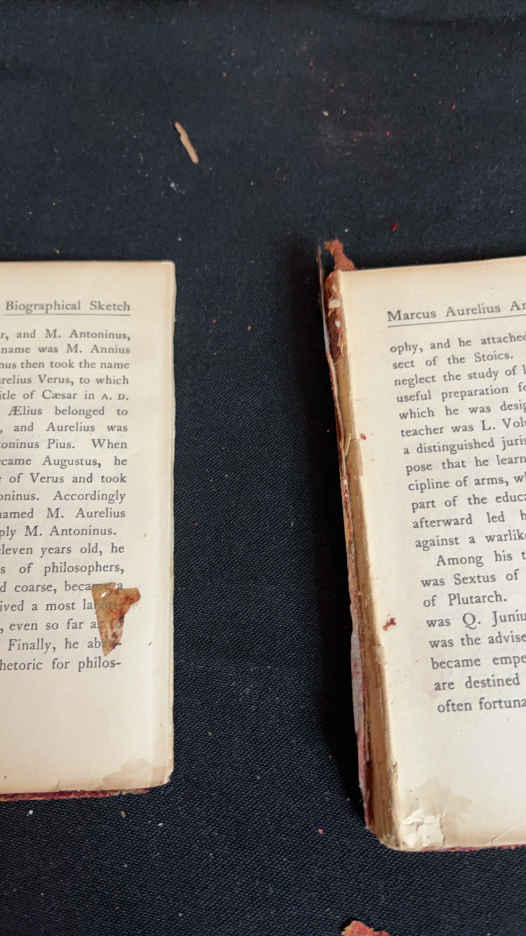 Biographical Sketch
r, and M. Antoninus,
name was M. Annius
nus then took the name
urelius Verus, to which
itle of Cæsar in A. D.
Ælius belonged to
, and Aurelius was
toninus Pius. When
came Augustus, he
of Verus and took
oninus. Accordingly
named M. Aurelius
ply M. Antoninus.
eleven years old, he
s of philosophers,
d coarse,
ived a most
, even so far
Finally, he
hetoric for philos-
Marcus Aurelius An
ophy, and he attached
sect of the Stoics.
neglect the study of l
useful preparation fo
which he was desig
teacher was L. Volu
a distinguished juris
pose that he learn
cipline of arms, wh
part of the educa
afterward led h
against a warlik
Among his t
was Sextus of
of Plutarch.
was Q. Juniu
was the advise
became empe
are destined
often fortuna